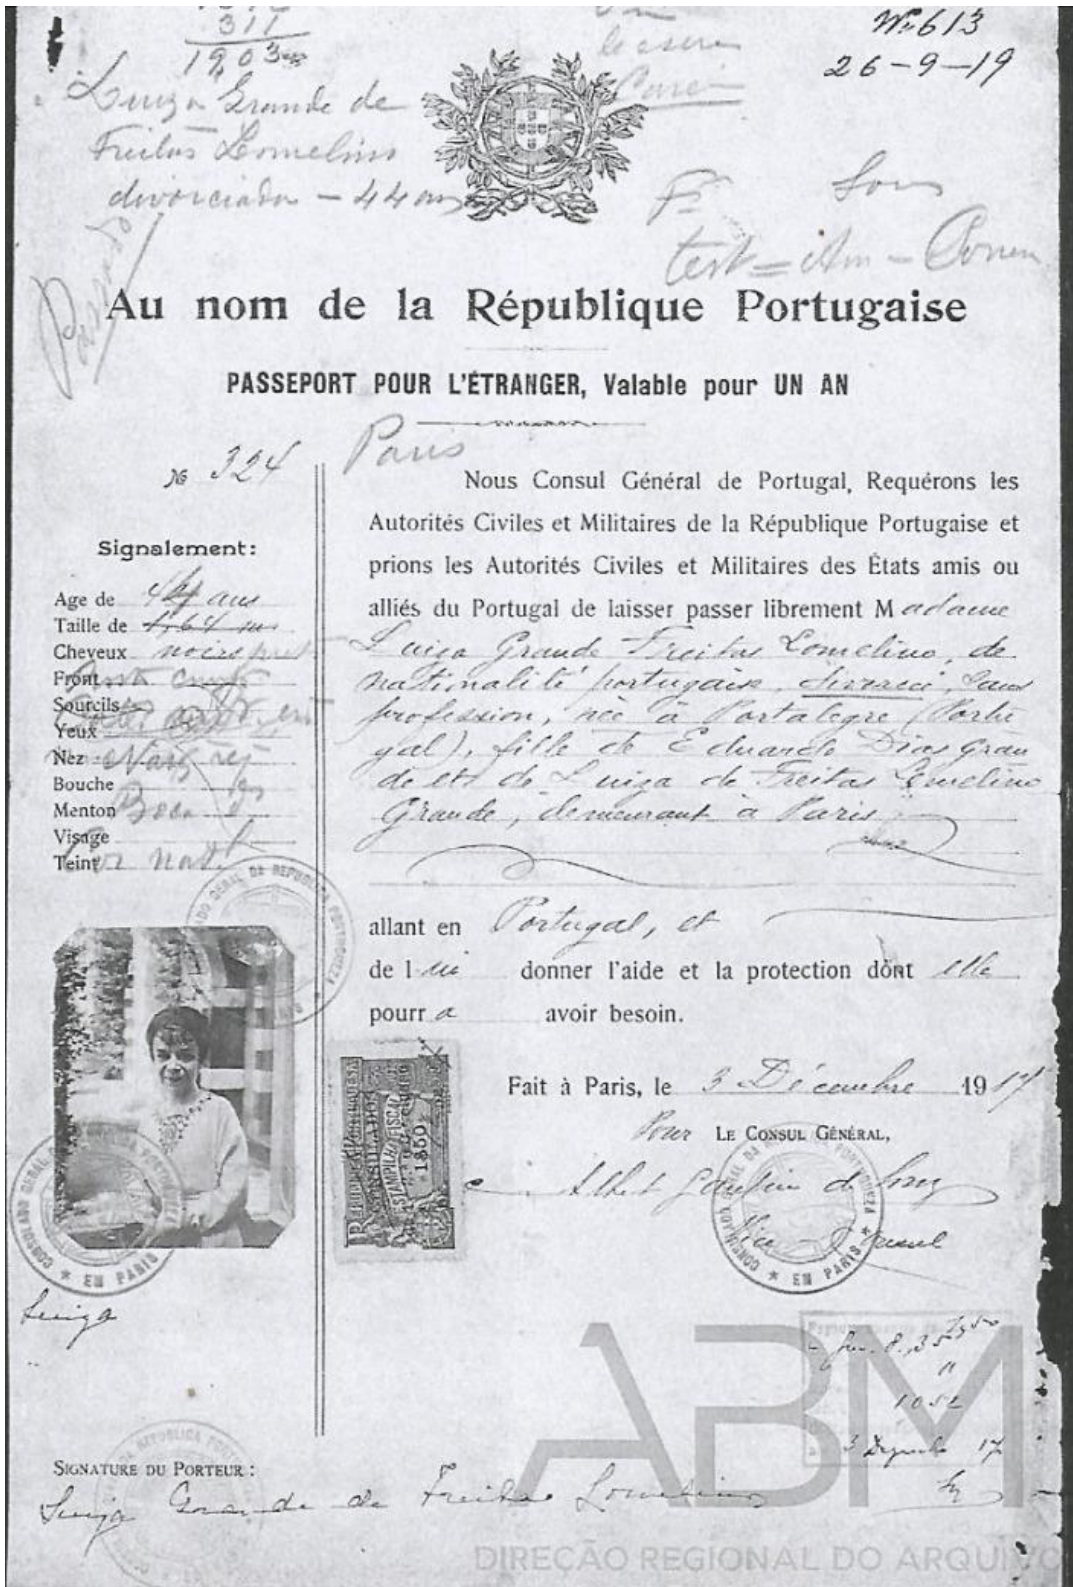 311
1903
Nº 613
26-9-19
Luiza Grande de
Freitas Lomelino
divorciada - 44 anos
Passado
test = Am -
Au nom de la République Portugaise
PASSEPORT POUR L'ÉTRANGER, Valable pour UN AN
Nº 324
Paris
Signalement:
Age de 44 ans
Taille de 1,64 m
Cheveux noirs
Front
Sourcils
Yeux
Nez
Bouche
Menton
Visage
Teint nat.
Nous Consul Général de Portugal, Requérons les
Autorités Civiles et Militaires de la République Portugaise et
prions les Autorités Civiles et Militaires des États amis ou
alliés du Portugal de laisser passer librement Madame
Luiza Grande Freitas Lomelino, de
nationalité portugaise, divorcée, sans
profession, née à Portalegre (Portu
gal), fille de Eduardo Dias Gran
de et de Luiza de Freitas Lomelino
Grande, demeurant à Paris
allant en Portugal, et
de lui donner l'aide et la protection dont elle
pourra avoir besoin.
Fait à Paris, le 3 Décembre 1917
Pour LE CONSUL GÉNÉRAL,
Vice-Consul
CONSULADO GERAL DA REPUBLICA PORTUGUEZA
★ EM PARIS ★
REPUBLICA PORTUGUESA
CONSULADOS
ESTAMPILHA FISCAL
1$50
CONSULADO GERAL DA REPUBLICA PORTUGUEZA
★ EM PARIS ★
CONSULADO GERAL DA REPUBLICA PORTUGUEZA
★ EM PARIS ★
Luiza
1052
3 Dezembro 17
SIGNATURE DU PORTEUR :
Luiza Grande de Freitas Lomelino
ABM
DIREÇÃO REGIONAL DO ARQUIVO